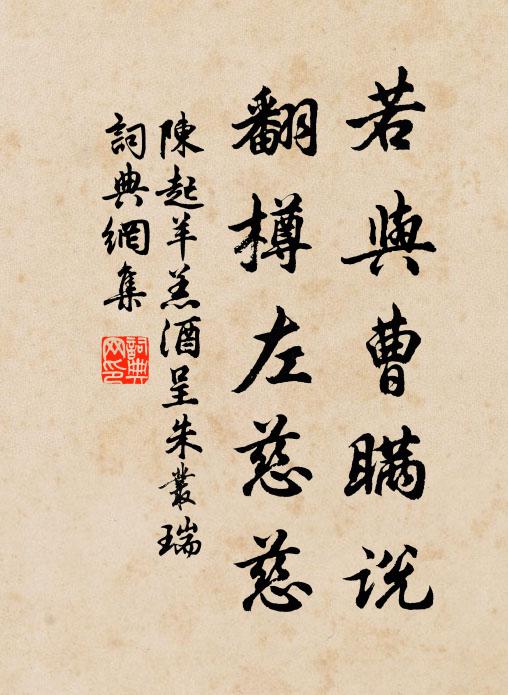 若與曹瞞說
翻樽左慈慈
陳起羊羔酒呈朱叢瑞
詞典網集
詞典網印